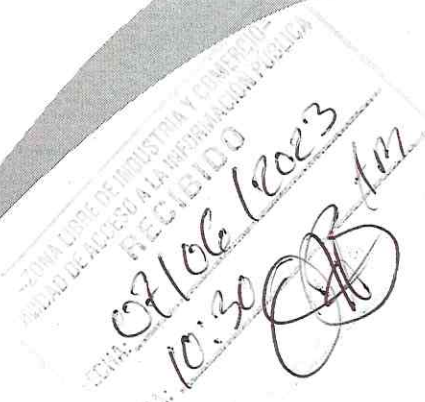 -ZONA LIBRE DE INDUSTRIA Y COMERCIO-
UNIDAD DE ACCESO A LA INFORMACIÓN PÚBLICA
RECIBIDO
FECHA: 07/06/2023
10:30 AM